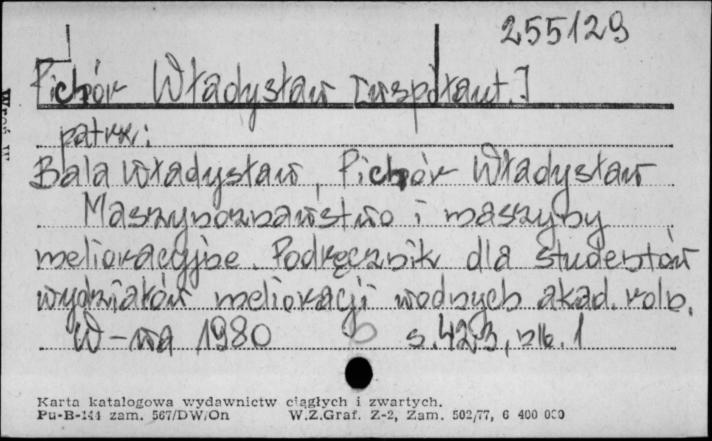 255129
Pichór Władysław [współaut.]
patrz:
Bala Władysław, Pichór Władysław
Maszynoznawstwo i maszyny
melioracyjne. Podręcznik dla studentów
wydziałów melioracji wodnych akad. roln.
W-wa 1980 s. 423, nlb. 1
Karta katalogowa wydawnictw ciągłych i zwartych.
Pu-B-144 zam. 567/DW/On W.Z.Graf. Z-2, Zam. 502/77, 6 400 000